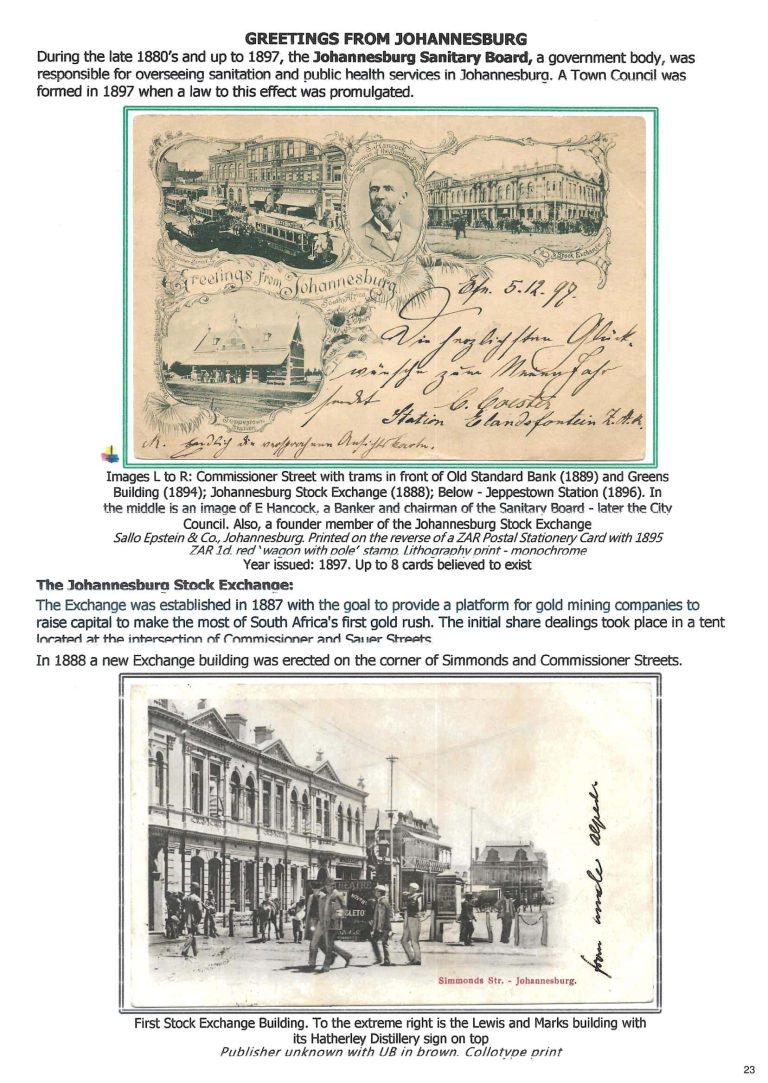 GREETINGS FROM JOHANNESBURG
During the late 1880's and up to 1897, the Johannesburg Sanitary Board, a government body, was
responsible for overseeing sanitation and public health services in Johannesburg. A Town Council was
formed in 1897 when a law to this effect was promulgated.
E. Hancock
Stock Exchange
Greetings from Johannesburg
South Africa
Jeppestown
Station
5.12.97.
Die herzlichsten Glück-
wünsche zum Neuen Jahr
sendet C. Coester
Station Elandsfontein Z.A.R.
endlich die versprochenen Ansichtskarten.
Images L to R: Commissioner Street with trams in front of Old Standard Bank (1889) and Greens
Building (1894); Johannesburg Stock Exchange (1888); Below - Jeppestown Station (1896). In
the middle is an image of E Hancock, a Banker and chairman of the Sanitary Board - later the City
Council. Also, a founder member of the Johannesburg Stock Exchange
Sallo Epstein & Co., Johannesburg. Printed on the reverse of a ZAR Postal Stationery Card with 1895
ZAR 1d. red 'wagon with pole' stamp. Lithography print - monochrome
Year issued: 1897. Up to 8 cards believed to exist
The Johannesburg Stock Exchange:
The Exchange was established in 1887 with the goal to provide a platform for gold mining companies to
raise capital to make the most of South Africa's first gold rush. The initial share dealings took place in a tent
located at the intersection of Commissioner and Sauer Streets
In 1888 a new Exchange building was erected on the corner of Simmonds and Commissioner Streets.
THEATRE
from uncle Alfred
Simmonds Str. - Johannesburg.
First Stock Exchange Building. To the extreme right is the Lewis and Marks building with
its Hatherley Distillery sign on top
Publisher unknown with UB in brown. Collotype print
23